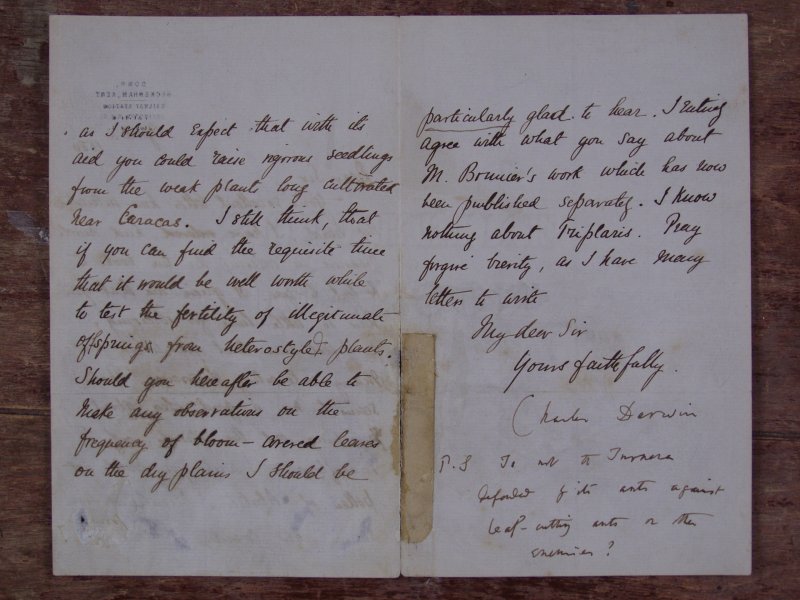 as I should expect that with its
aid you could raise vigorous seedlings
from the weak plants long cultivated
near Caracas. I still think, that
if you can find the requisite time
that it would be well worth while
to test the fertility of illegitimate
offsprings from heterostyled plants.
Should you hereafter be able to
make any observations on the
frequency of bloom-covered leaves
on the dry plains I should be
particularly glad to hear. I entirely
agree with what you say about
M. Bonnier's work which has now
been published separately. I know
nothing about Triplaris. Pray
forgive brevity, as I have many
letters to write
My dear Sir
Yours faithfully.
Charles Darwin
P.S Is not the Turnera
defended by its ants against
leaf-cutting ants or other
enemies?